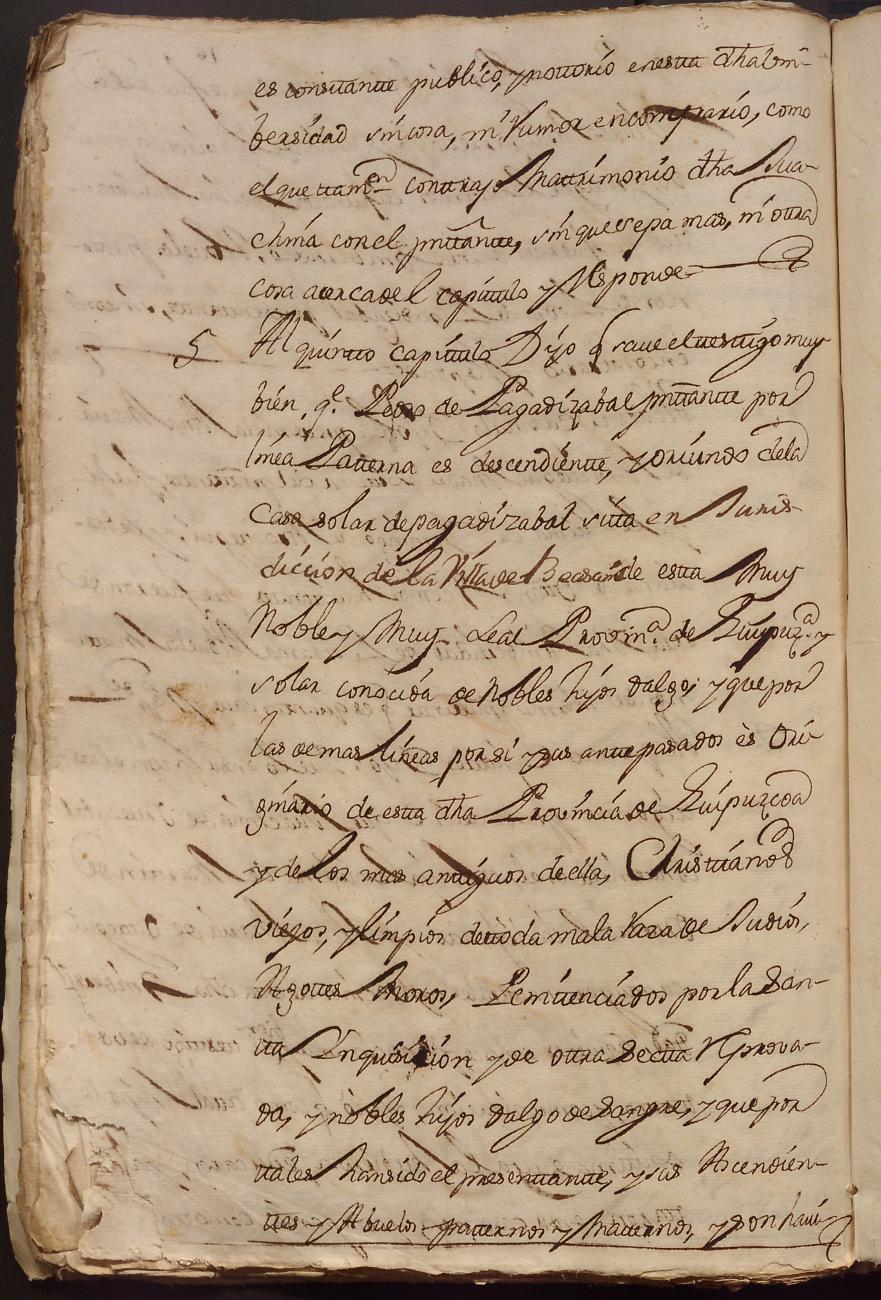 es constante publico, y nottorio en esta dha Vni-
bersidad sin cosa, ni Rumor en comtrario, como
el que ttamen conttrajo Mattrimonio dha Jua-
china con el pnttante, sin que sepa mas, ni ottra
cosa acerca del capittulo y Responde
5 Al quintto capittulo Dijo q save el testtigo muy
bien, qe. Pedro de Pagadizabal pnttantte por
linea Patterna es descendientte, y oriundo de la
Casa solar de pagadizabal sitta en Juris-
diccion de la Villa de Beasain de estta Muy
Noble y Muy Leal Provina. de Guipuzca. y
solar conocida de Nobles hijos dalgo; y que por
las demas lineas por si y sus antepasados ès Ori-
ginario de esta dha Provincia de Guipuzcoa
y de los mas antiguos de ella, Christtianos
viejos, y limpios de ttoda mala Raza de Judios,
Agottes Moros, Penitenciados por la San-
tta Inquisicion y de ottra Sectta Reprova-
da, y nobles hijos dalgo de Sangre, y que por
ttales han sido el presenttantte, y sus Ascendien-
ttes y Abuelos patternos y Matternos, y son havi-